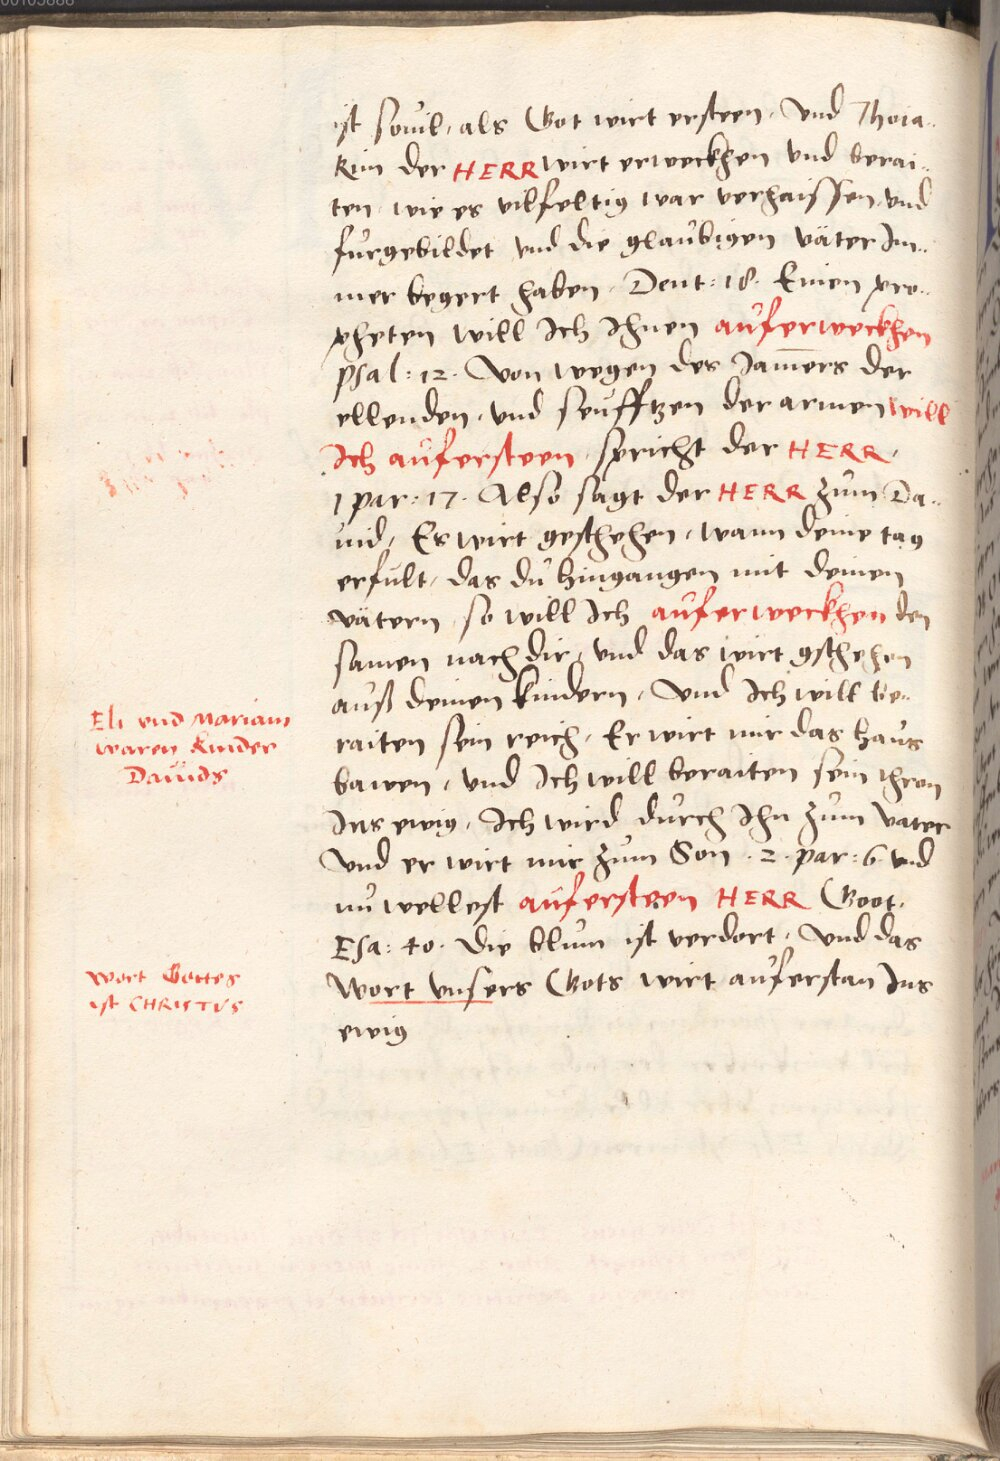 ist souil, als Got wirt ersteen, Vnd Ihoia-
kim der HERR wirt erweckhen vnd berai-
ten, wie es vilfeltig war verhaissen, vnd
furgebildet vnd die glaubigen väter Im-
mer begert haben, Deut: 18. Einen pro-
pheten will Ich Ihnen auferweckhen
psal: 12. Von wegen des Jam̄ers der
ellenden, vnd seufftzen der armen will
Ich aufersteen, spricht der HERR,
1 par: 17. Also sagt der HERR zum Da-
uid, Es wirt geschehen, wann deine tag
erfült, das du hingangen mit deinen
vätern, so will Ich auferweckhen den
samen nach dir, vnd das wirt gschehen
auß deinen kindern, Vnd Ich will be-
raiten sein reich, Er wirt mir das haus
bawen, vnd Ich will beraiten sein thron
Ins ewig, Ich wird durch Ihn zum vater
vnd er wirt mir zum Son. 2. par: 6. vnd
nu wellest aufersteen HERR Goot.
Esa: 40. Die blum ist verdort, Vnd das
Wort vnsers Gots wirt auferstan Ins
ewig
Eli vnd Mariam
waren kinder
Dauids
Wort Gottes
ist CHRISTVS